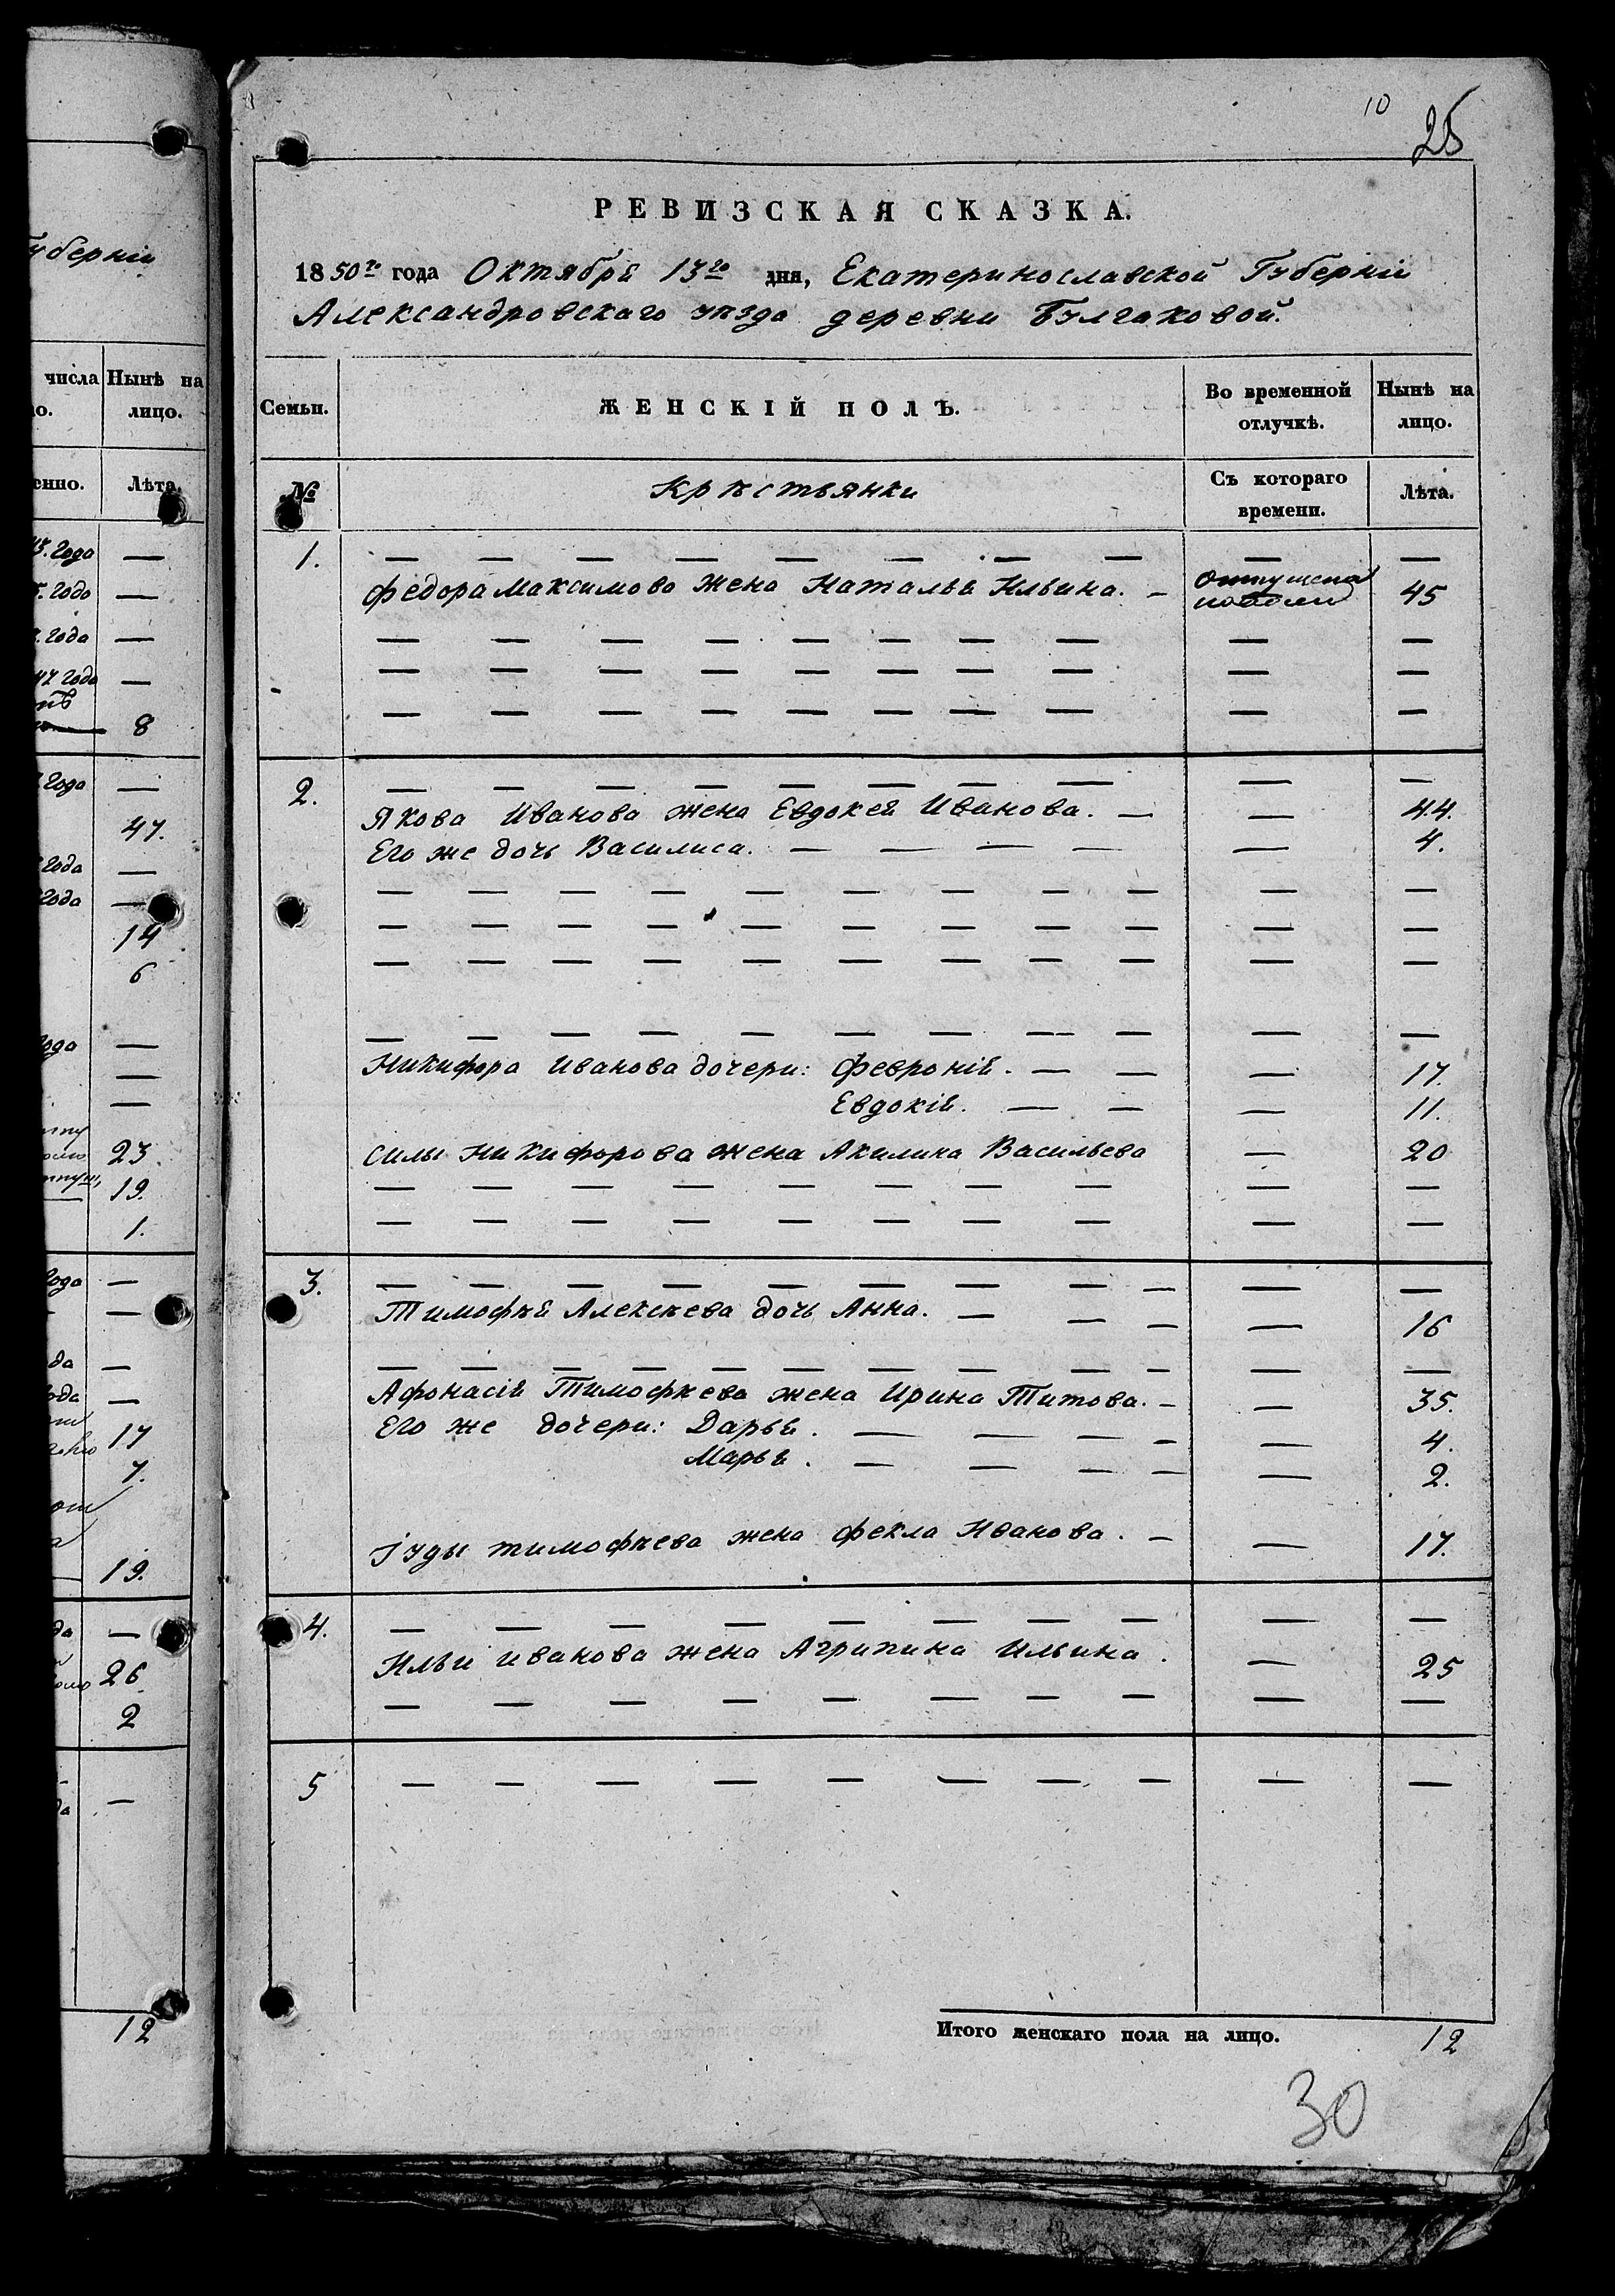 Губерніи
числа Нынѣ на
ло. лицо.
енно. Лѣта.
года —
года —
года —
47 года —
8
года —
47.
года —
года —
14
6
года —
—
—
23.
19.
1.
года —
—
да —
года —
17
7.
19.
да —
26.
2
да —
12
10
25
РЕВИЗСКАЯ СКАЗКА.
1850го года Октября 13го дня, Екатеринославской Губерніи
Александровскаго уѣзда деревни Булгаковой.
Семьи. ЖЕНСКІЙ ПОЛЪ. Во временной отлучкѣ. Нынѣ на лицо.
№ Крѣстьянки Съ котораго времени. Лѣта.
1. — — — — — — — — — —
Федора Максимова жена Наталья Ильина. — Отпущена 45
— — — — — — — — — —
— — — — — — — — — —
— — — — — — — — — —
2. — — — — — — — — — —
Якова Иванова жена Евдокея Иванова. — — 44.
Его же дочь Василиса. — — — — — 4.
— — — — — — — — — — —
— — — — — — — — — — —
— — — — — — — — — — —
— — — — — — — — — — —
Никифора Иванова дочери: Февронія. — — — 17.
Евдокія. — — — 11.
Силы Никифорова жена Акилина Васильева — 20
— — — — — — — — — —
— — — — — — — — — —
3. — — — — — — — — — — —
Тимофѣя Алексѣева дочь Анна. — — — — 16
— — — — — — — — — — — —
Афонасія Тимофѣева жена Ирина Титова. — — 35.
Его же дочери: Дарья. — — — — — 4.
Марья. — — — — — 2.
Іуды тимофѣева жена Фекла Иванова. — — 17.
4. — — — — — — — — — —
Ильи иванова жена Агрипина Ильина. — 25
— — — — — — — — — —
5 — — — — — — — — — —
Итого женскаго пола на лицо. 12
30